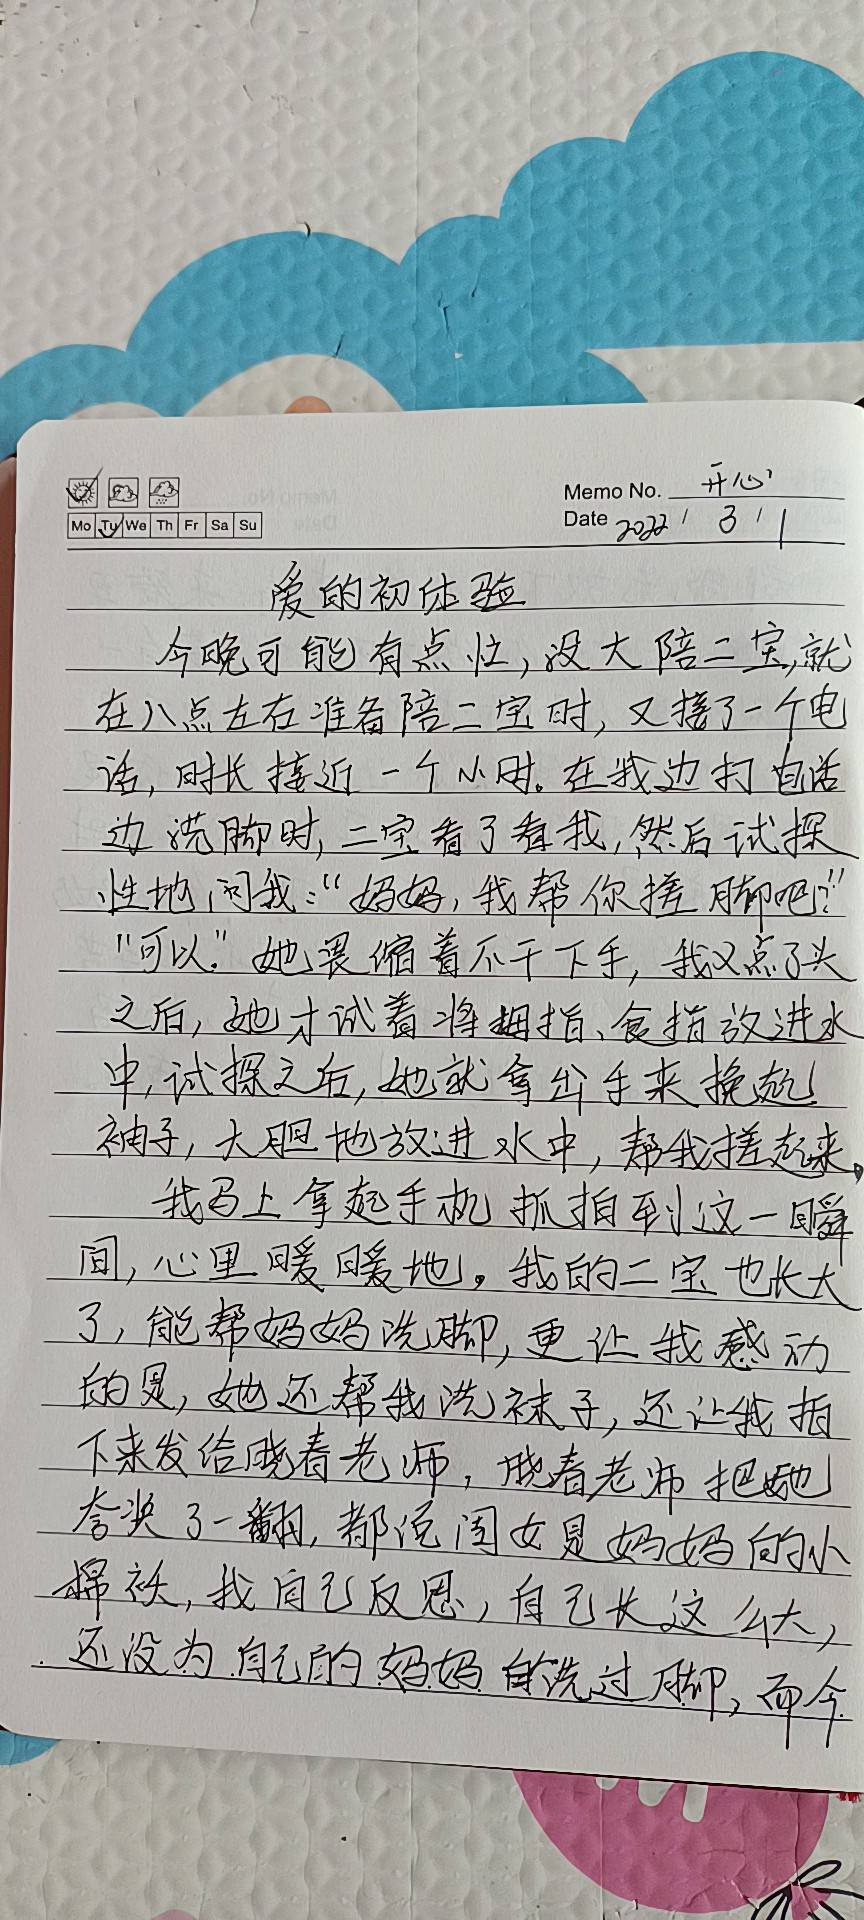 Memo No. 开心
Mo Tu We Th Fr Sa Su
Date 2022 / 3 / 1
爱的初体验
今晚可能有点忙,没大陪二宝,就
在八点左右准备陪二宝时,又接了一个电
话,时长接近一个小时。在我边打电话
边洗脚时,二宝看了看我,然后试探
性地问我:“妈妈,我帮你搓脚吧?”
“可以。”她畏缩着不干下手,我又点了头
之后,她才试着将拇指、食指放进水
中,试探之后,她就拿出手来挽起
袖子,大胆地放进水中,帮我搓起来。
我马上拿起手机抓拍到这一瞬
间,心里暖暖地。我的二宝也长大
了,能帮妈妈洗脚,更让我感动
的是,她还帮我洗袜子,还让我拍
下来发给晓春老师,晓春老师把她
夸奖了一翻,都说闺女是妈妈的小
棉袄,我自己反思,自己长这么大,
还没为自己的妈妈洗过脚,而今